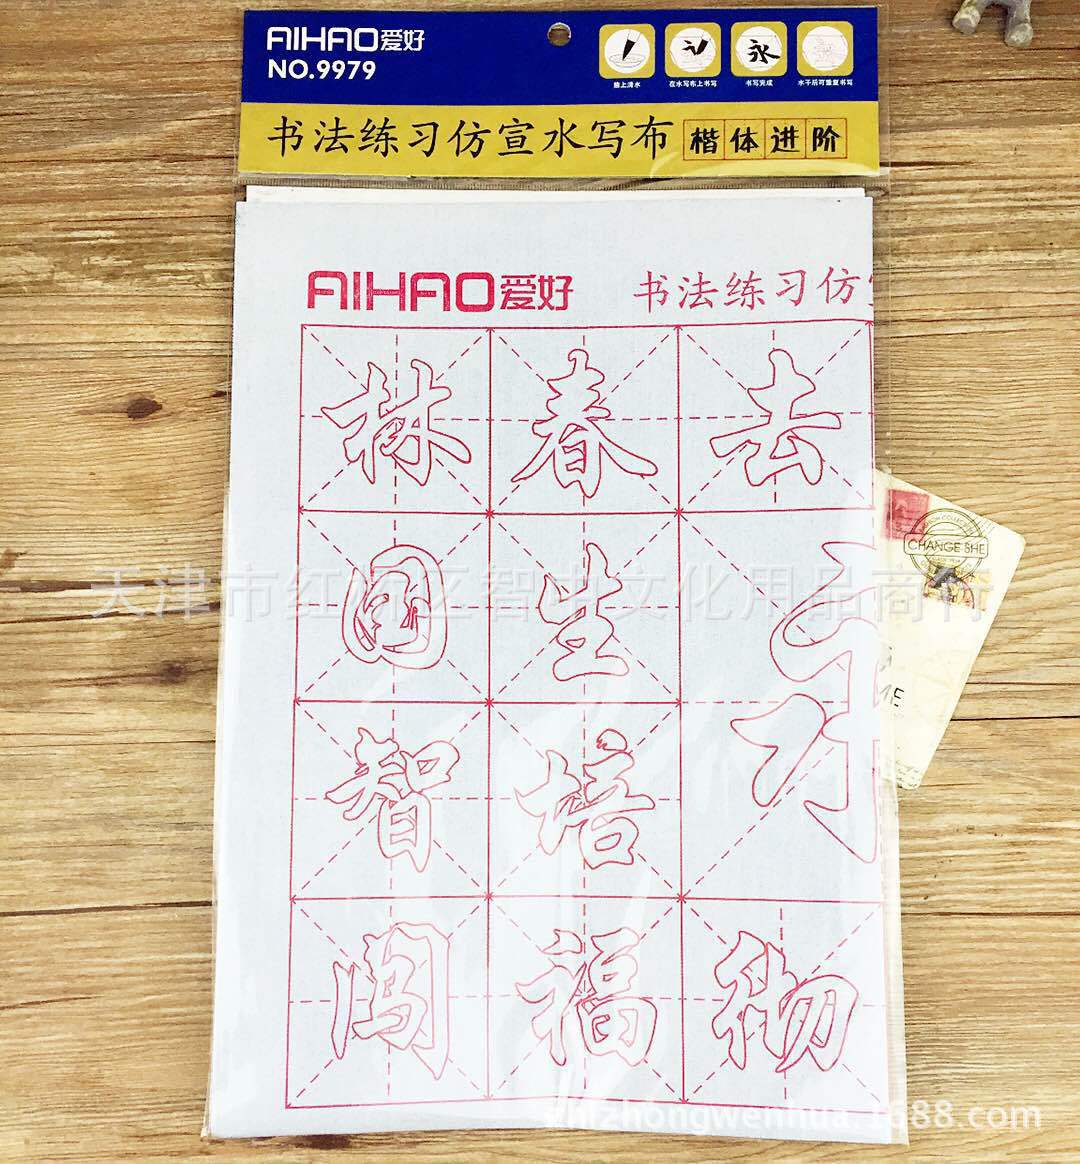 AIHAO爱好
NO.9979
蘸上清水
在水写布上书写
书写完成
水干后可重复书写
永
书法练习仿宣水写布 楷体进阶
AIHAO爱好 书法练习仿
林 春 去
生
智 培
闯 福 彻
天津市红桥区智中文化用品商行
CHANGE SHE
ME
zhizhongwenhua.1688.com